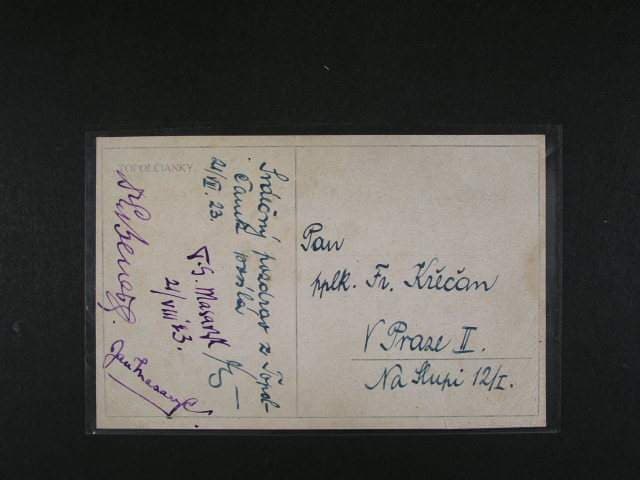 TOPOLČIANKY
Srdečný pozdrav z Topol-
čianek posílá
21/VII. 23.
T. G. Masaryk
21/VIII 23.
Jan Masaryk
Pan
pplk. Fr. Křečan
V Praze II.
Na Slupi 12/I.